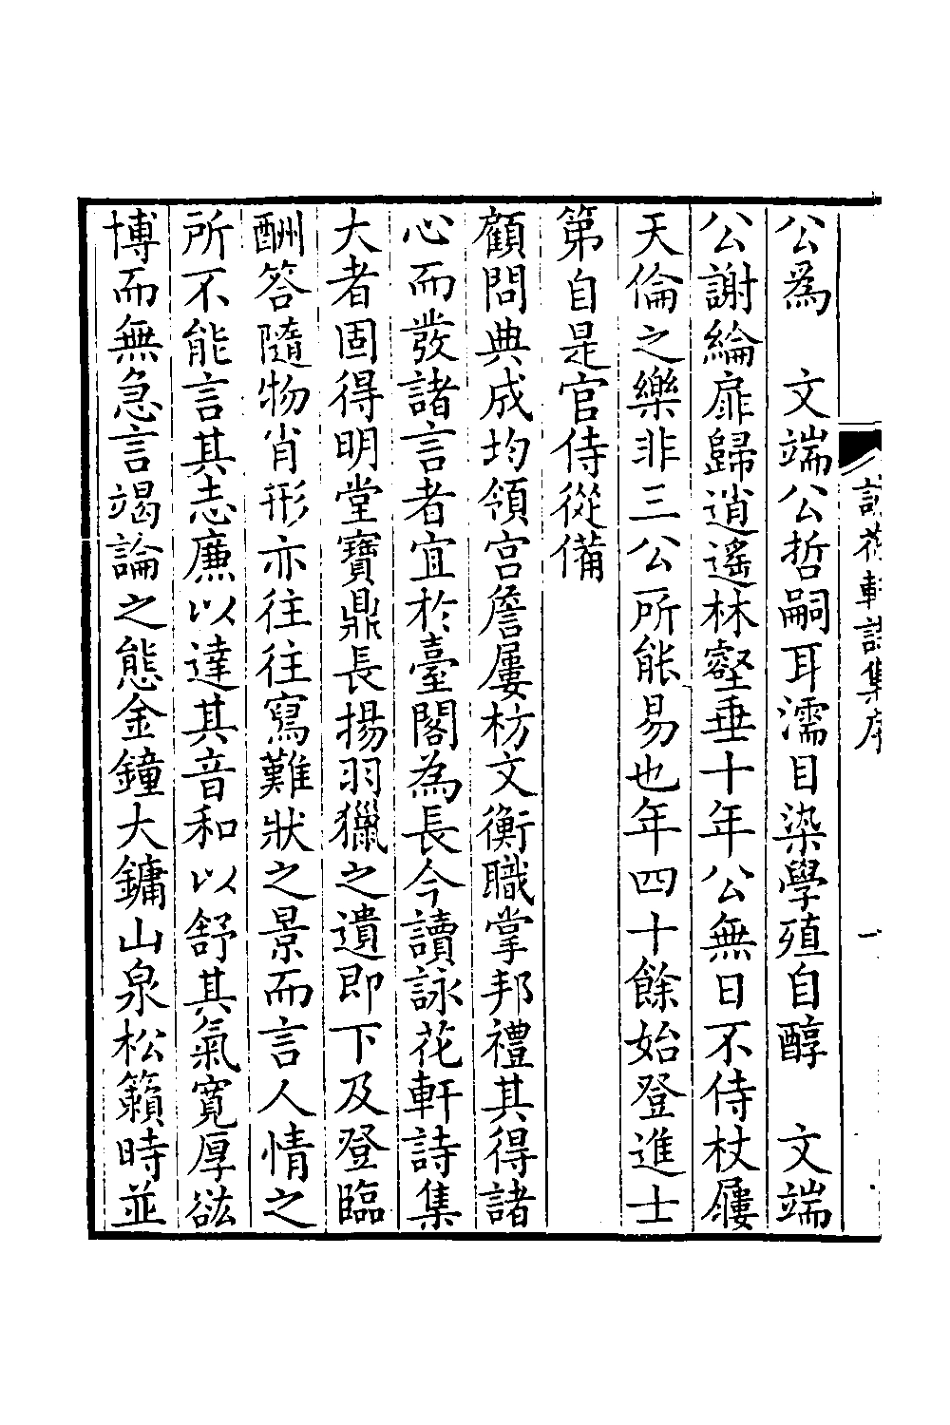 公爲　文端公哲嗣耳濡目染學殖自醇　文端
公謝綸扉歸逍遙林壑垂十年公無日不侍杖屨
天倫之樂非三公所能易也年四十餘始登進士
第自是官侍從備
顧問典成均領宮詹屢枋文衡職掌邦禮其得諸
心而發諸言者宜於臺閣為長今讀詠花軒詩集
大者固得明堂寶鼎長揚羽獵之遺即下及登臨
酬答隨物肖形亦往往寫難狀之景而言人情之
所不能言其志廉以達其音和以舒其氣寬厚谹
博而無急言竭論之態金鐘大鏞山泉松籟時並
詠花軒詩集序
一